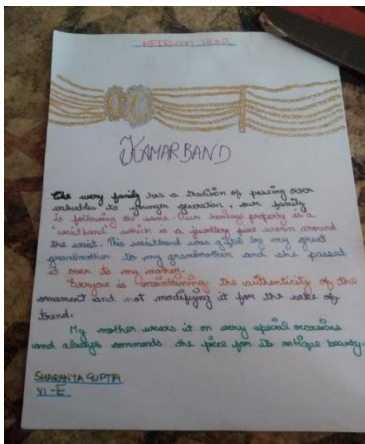 HEIRLOOM HUNT
KAMARBAND
The every family has a tradition of passing over
valuables to younger generation, our family
is following or same. Our heritag property is a
'waistband' which is a jewellery piece worn around
the waist. This waistband was gifted by my great
grandmother to my grandmother and she passed
it over to my mother.
Everyone is maintaining the authenticity of the
ornament and not modifying it for the sake of
trend.
My mother wears it on very special occasions
and always commends the piece for its antique beauty.
SHARANYA GUPTA
VI-E